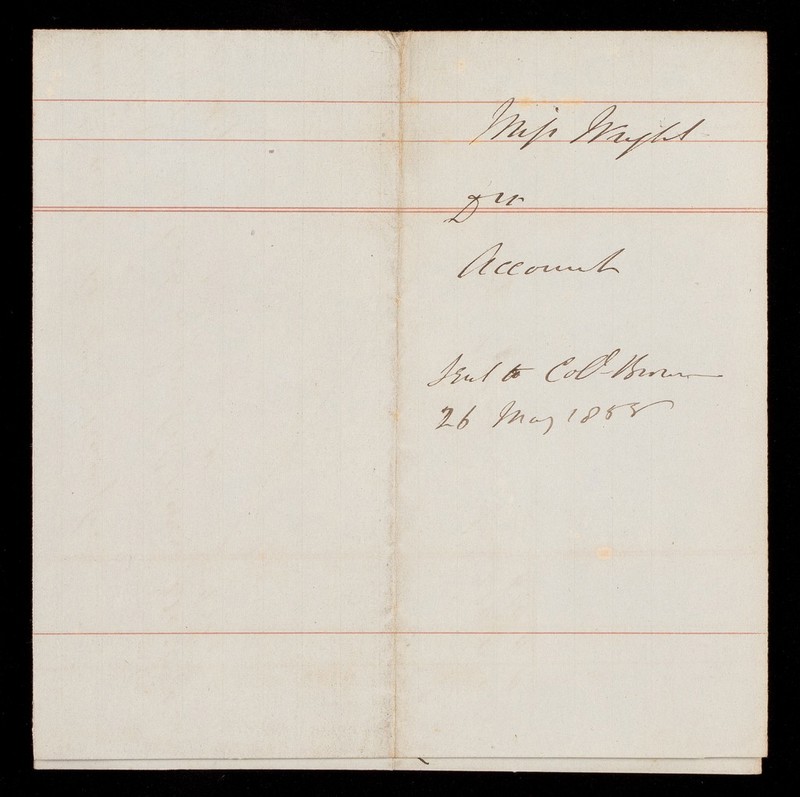 Miss Wright
Dr
Account
Sent to Col Brown
26 May 1855